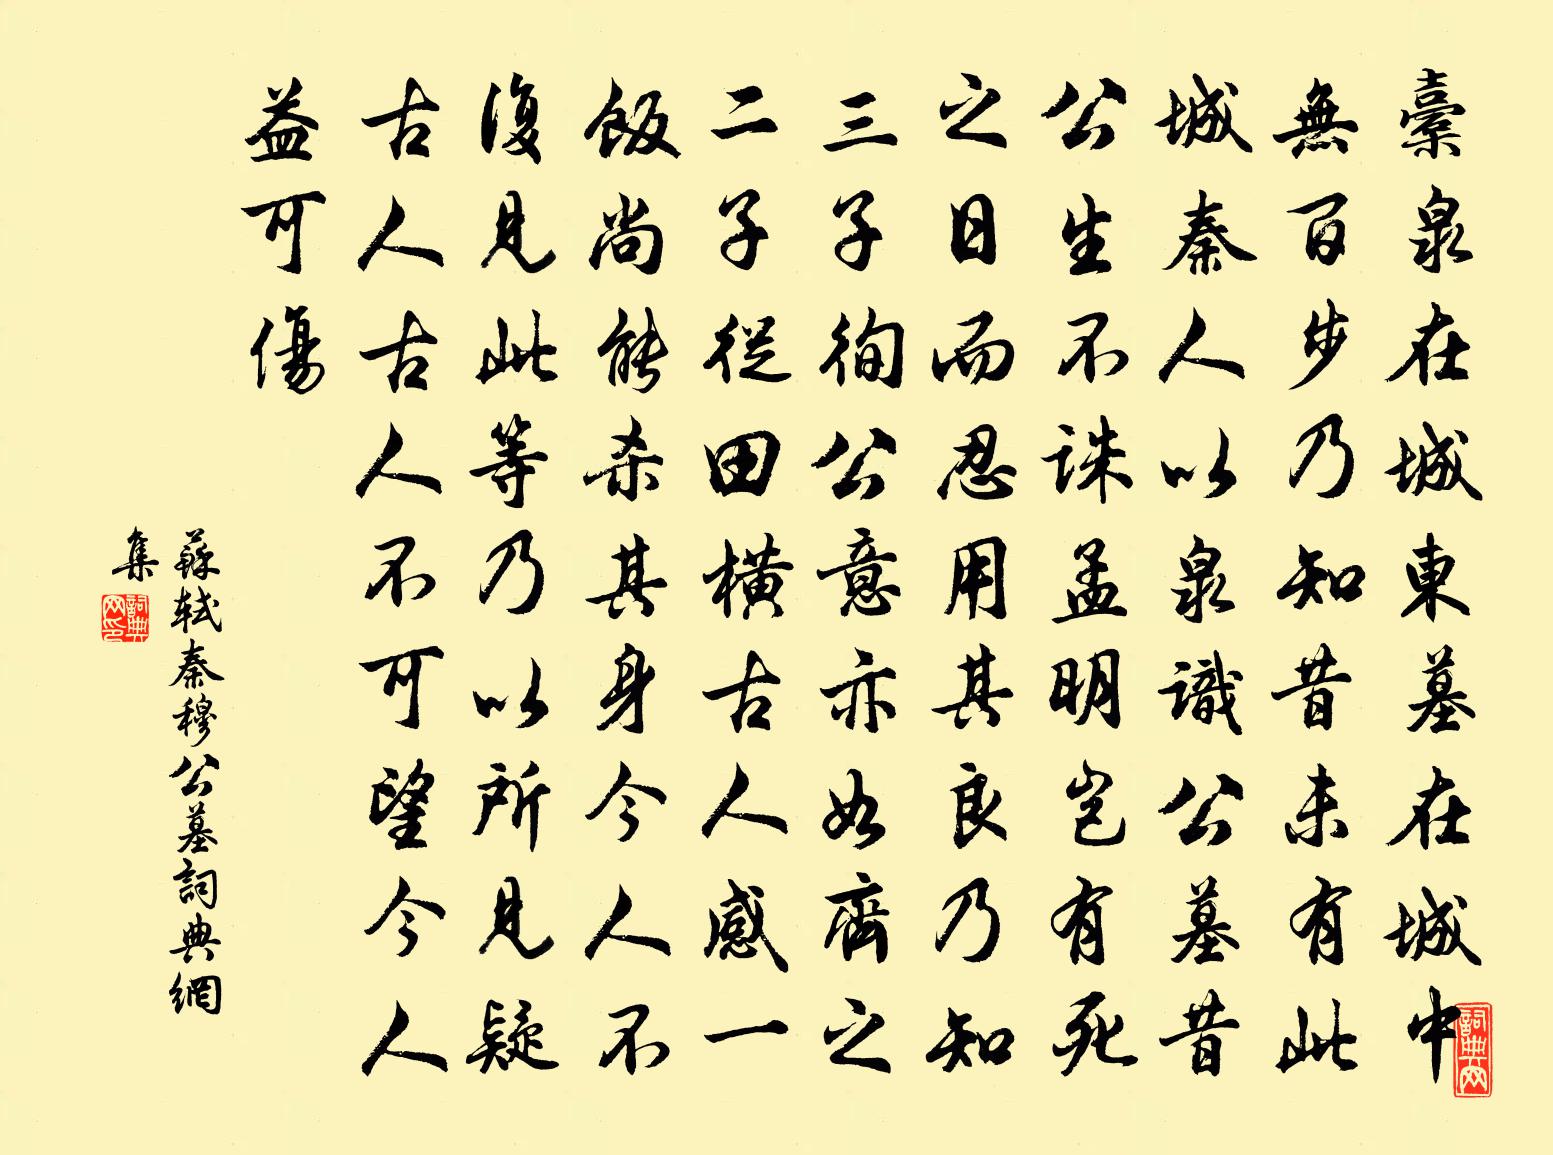 橐泉在城東墓在城中
無百步乃知昔未有此
城秦人以泉識公墓昔
公生不誅孟明豈有死
之日而忍用其良乃知
三子徇公意亦如齊之
二子從田橫古人感一
飯尚能殺其身今人不
復見此等乃以所見疑
古人古人不可望今人
益可傷
蘇軾秦穆公墓詞典網
集
詞典網印
詞典網